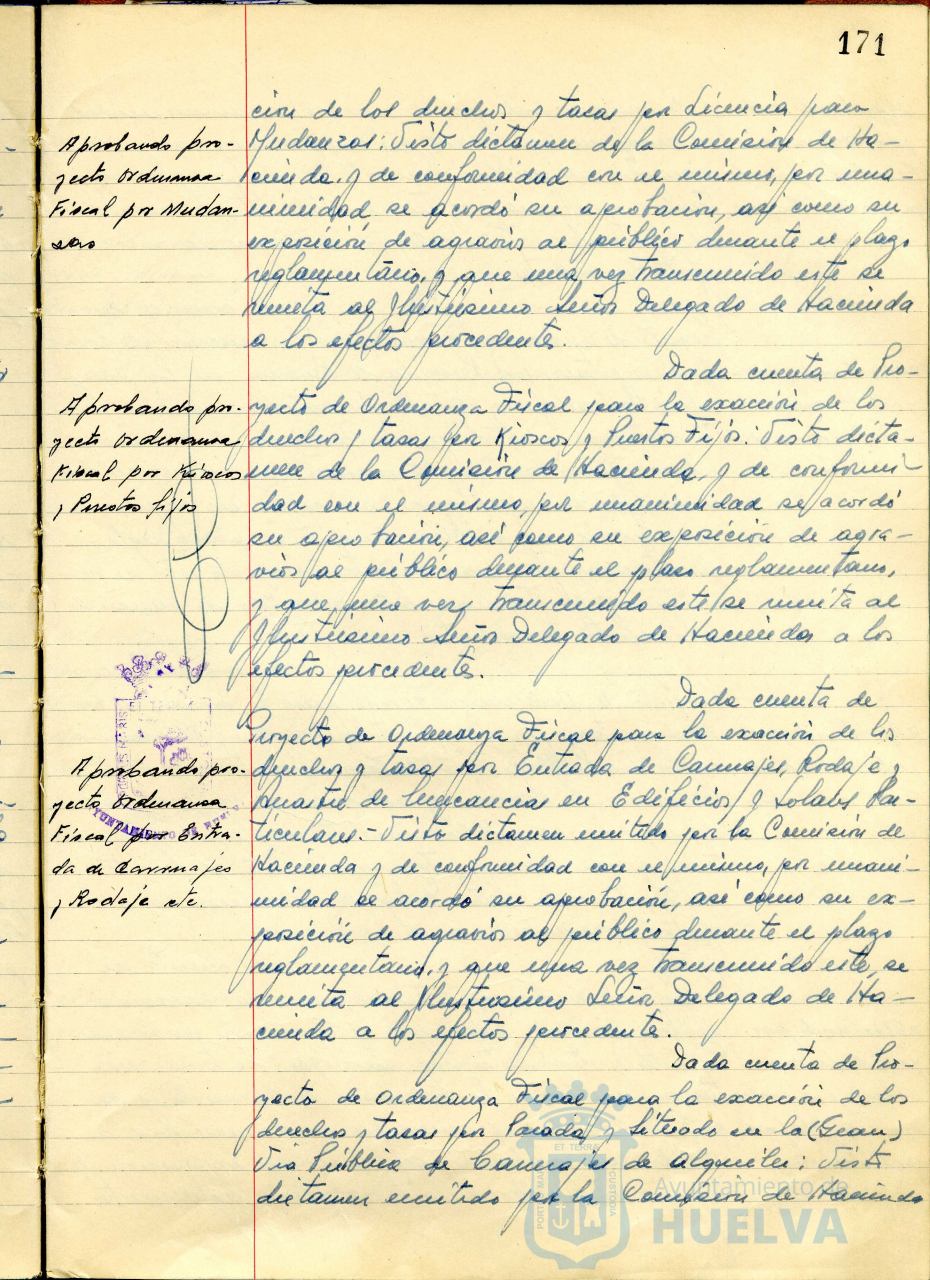 171
ción de los derechos y tasas por Licencia para
Mudanzas: Visto dictámen de la Comisión de Ha-
cienda y de conformidad con el mismo, por una-
nimidad se acordó su aprobación, asi como su
exposición de agravios al público durante el plazo
reglamentário, y que una vez transcurrido este se
remita al Ilustrisimo Señor Delegado de Hacienda
a los efectos procedentes.
Aprobando pro-
yecto ordenanza
Fiscal por Mudan-
zas
Dada cuenta de Pro-
yecto de Ordenanza Fiscal para la exacción de los
derechos y tasas por Kioscos y Puestos Fijos: Visto dicta-
men de la Comisión de Hacienda, y de conformi-
dad con el mismo, por unanimidad se acordó
su aprobación, asi como su exposición de agra-
vios al público durante el plazo reglamentario,
y que una vez transcurrido este se remita al
Ilustrisimo Señor Delegado de Hacienda a los
efectos procedentes.
Aprobando pro-
yecto ordenanza
Fiscal por Kioscos
y Puestos fijos
Dada cuenta de
Proyecto de Ordenanza Fiscal para la exacción de los
derechos y tasas por Entrada de Carruajes, Rodaje y
arrastre de Mercancias en Edificios y Solares Par-
ticulares.- Visto dictamen emitido por la Comisión de
Hacienda y de conformidad con el mismo, por unani-
midad se acordó su aprobación, asi como su ex-
posición de agravios al público durante el plazo
reglamentario, y que una vez transcurrido este, se
remita al Ilustrisimo Señor Delegado de Ha-
cienda a los efectos procedente.
Aprobando pro-
yecto ordenanza
Fiscal por Entra-
da de Carruajes
y Rodaje etc.
Dada cuenta de Pro-
yecto de Ordenanza Fiscal para la exacción de los
derechos y tasas por Parada y Situado en la (Gran)
Via Pública de Carruajes de Alquiler: Visto
dictamen emitido por la Comisión de Hacienda
Ayuntamiento de
HUELVA